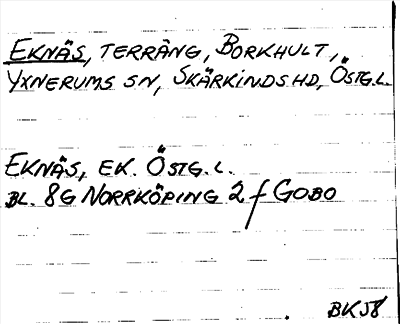 EKNÄS, TERRÄNG, BORKHULT,
YXNERUMS SN, SKÄRKINDS HD, ÖSTG.L.
EKNÄS, EK. ÖSTG.L.
BL. 8G NORRKÖPING 2 f GOBO
BK58